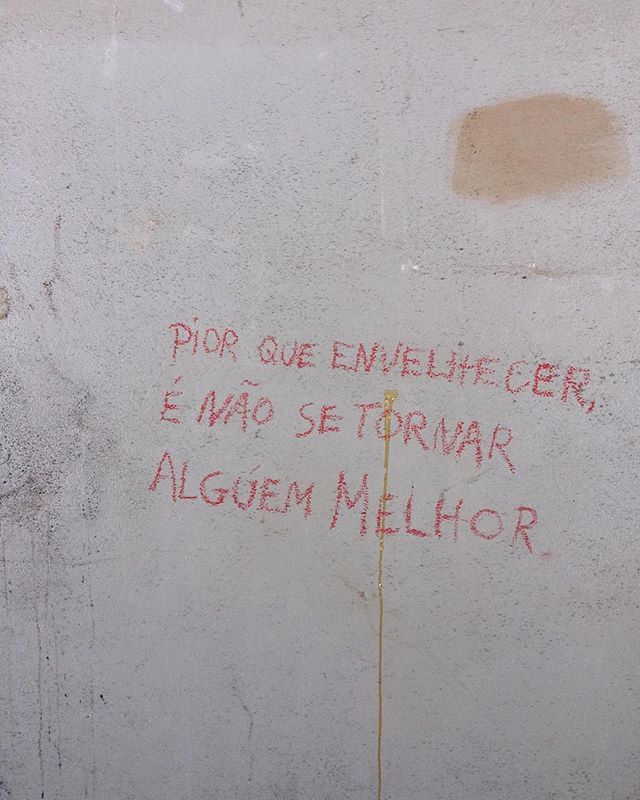 PIOR QUE ENVELHECER,
É NÃO SE TORNAR
ALGÚEM MELHOR.